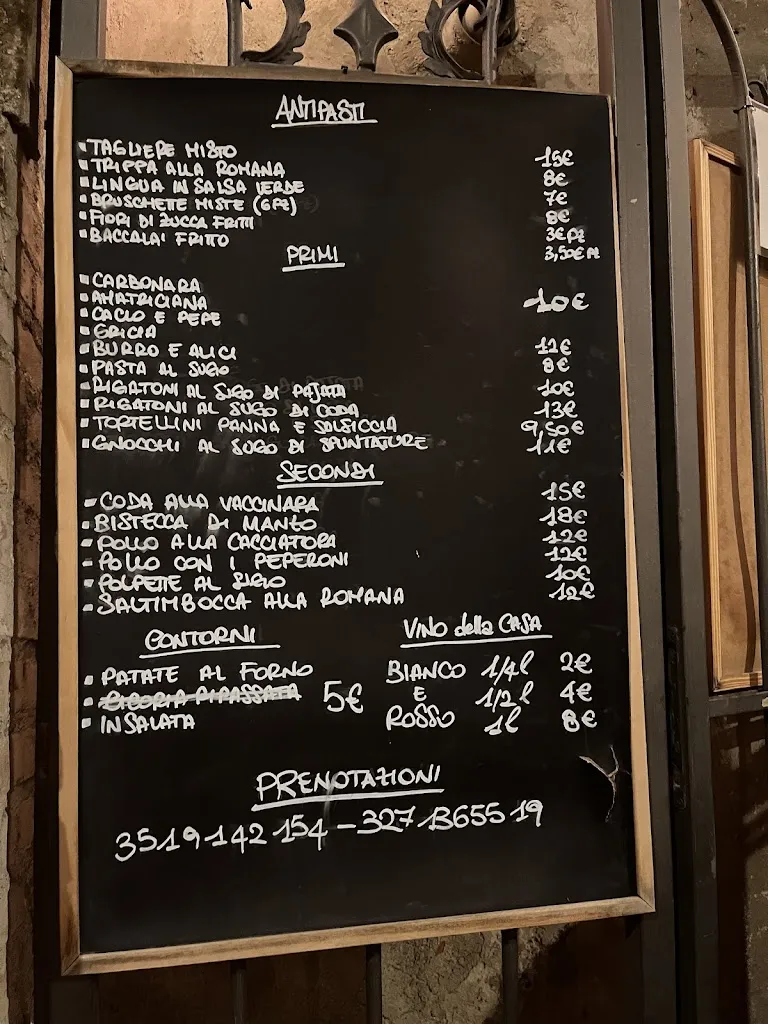 ANTIPASTI
▪ TAGLIERE MISTO 15€
▪ TRIPPA ALLA ROMANA 8€
▪ LINGUA IN SALSA VERDE 7€
▪ BRUSCHETTE MISTE (6PZ) 8€
▪ FIORI DI ZUCCA FRITTI 3€PZ
▪ BACCALA' FRITTO 3,50€PZ
PRIMI
▪ CARBONARA
▪ AMATRICIANA 10€
▪ CACIO E PEPE
▪ GRICIA
▪ BURRO E ALICI 12€
▪ PASTA AL SUGO 8€
▪ RIGATONI AL SUGO DI PAJATA 10€
▪ RIGATONI AL SUGO DI CODA 13€
▪ TORTELLINI PANNA E SALSICCIA 9,50€
▪ GNOCCHI AL SUGO DI SPUNTATURE 11€
SECONDI
- CODA ALLA VACCINARA 15€
- BISTECCA DI MANZO 18€
- POLLO ALLA CACCIATORA 12€
- POLLO CON I PEPERONI 12€
- POLPETTE AL SUGO 10€
- SALTIMBOCCA ALLA ROMANA 12€
CONTORNI VINO della CASA
▪ PATATE AL FORNO BIANCO 1/4l 2€
▪ CICORIA RIPASSATA 5€ E 1/2l 4€
▪ INSALATA ROSSO 1l 8€
PRENOTAZIONI
3519142154-3271365519